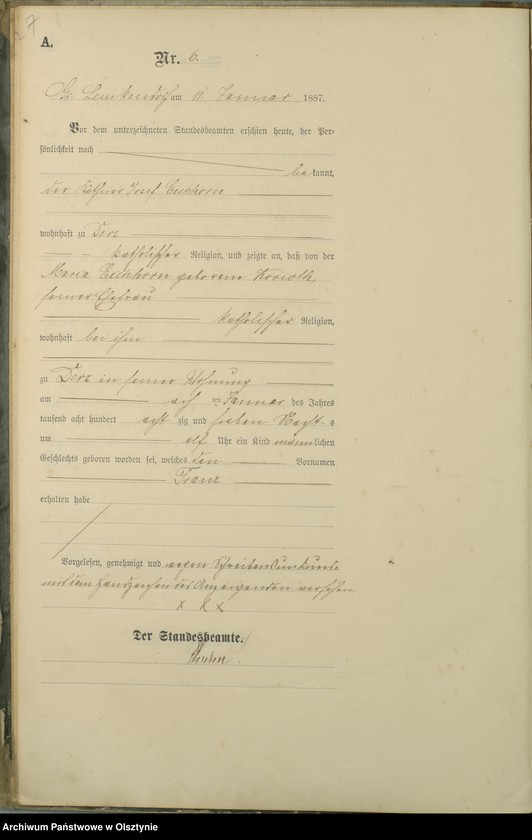 7
A.
Nr. 6.
Gr. Lemkendorf am 11. Januar 1887.
Vor dem unterzeichneten Standesbeamten erschien heute, der Per-
sönlichkeit nach
bekannt,
der Käthner Josef
wohnhaft zu Derz
katholischer Religion, und zeigte an, daß von der
Maria geborene
seiner Ehefrau
katholischer Religion,
wohnhaft bei ihm
zu Derz in seiner Wohnung
am ten Januar des Jahres
tausend acht hundert acht zig und sieben Nachts
um elf Uhr ein Kind männlichen
Geschlechts geboren worden sei, welches den Vornamen
Franz
erhalten habe
Vorgelesen, genehmigt und wegen Schreibensunkunde
mit dem Handzeichen des Anzeigenden versehen.
x x x
Der Standesbeamte.
Archiwum Państwowe w Olsztynie